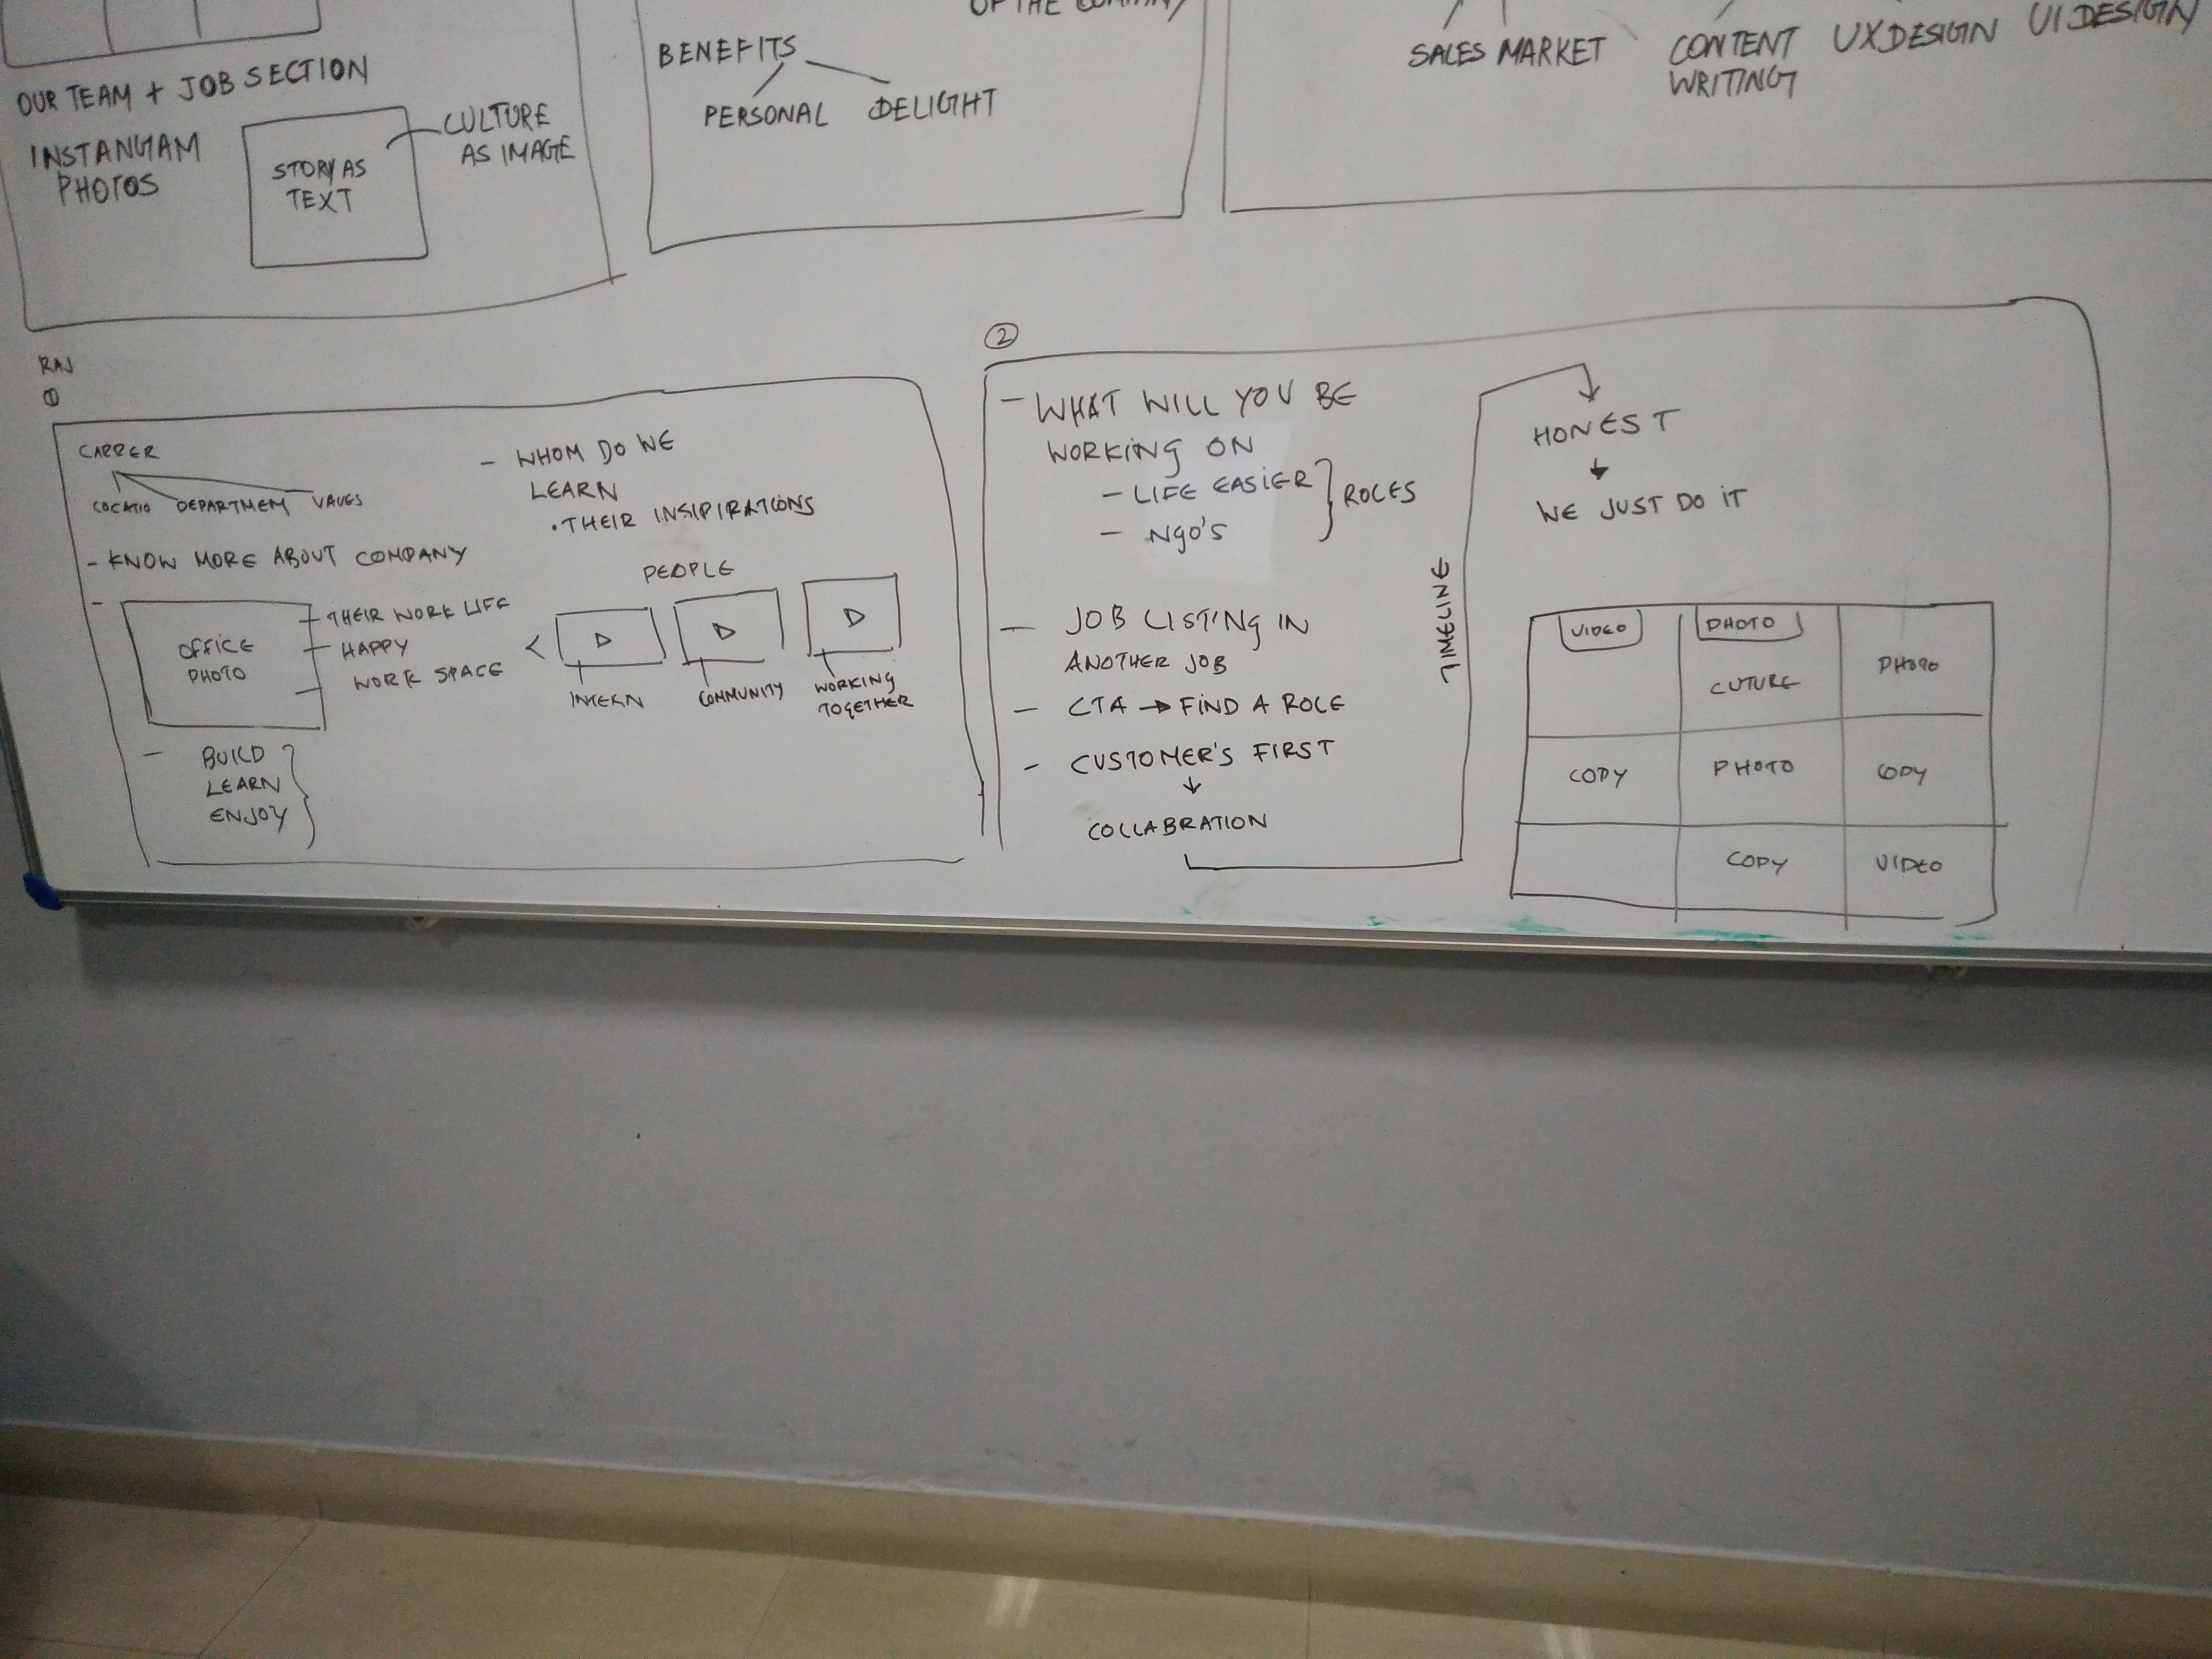 OUR TEAM + JOB SECTION
INSTANGIAM
PHOTOS
STORY AS
TEXT
CULTURE
AS IMAGE
OF THE COMPANY
BENEFITS
PERSONAL DELIGHT
SALES MARKET
CONTENT
WRITING
UX DESIGN
UI DESIGN
RAJ
①
CARRER
LOCATIO DEPARTMEM VAUES
- KNOW MORE ABOUT COMPANY
- OFFICE
PHOTO
THEIR WORK LIFE
HAPPY
WORK SPACE
- BUILD
LEARN
ENJOY
- WHOM DO WE
LEARN
• THEIR INSIPIRATIONS
PEOPLE
INTERN
COMMUNITY
WORKING
TOGETHER
②
- WHAT WILL YOU BE
WORKING ON
- LIFE EASIER
- NGO'S
ROLES
- JOB LISTING IN
ANOTHER JOB
- CTA → FIND A ROLE
- CUSTOMER'S FIRST
↓
COLLABRATION
TIMELINE
HONEST
↓
WE JUST DO IT
VIDEO PHOTO
CUTURE PHOTO
COPY PHOTO COPY
COPY VIDEO